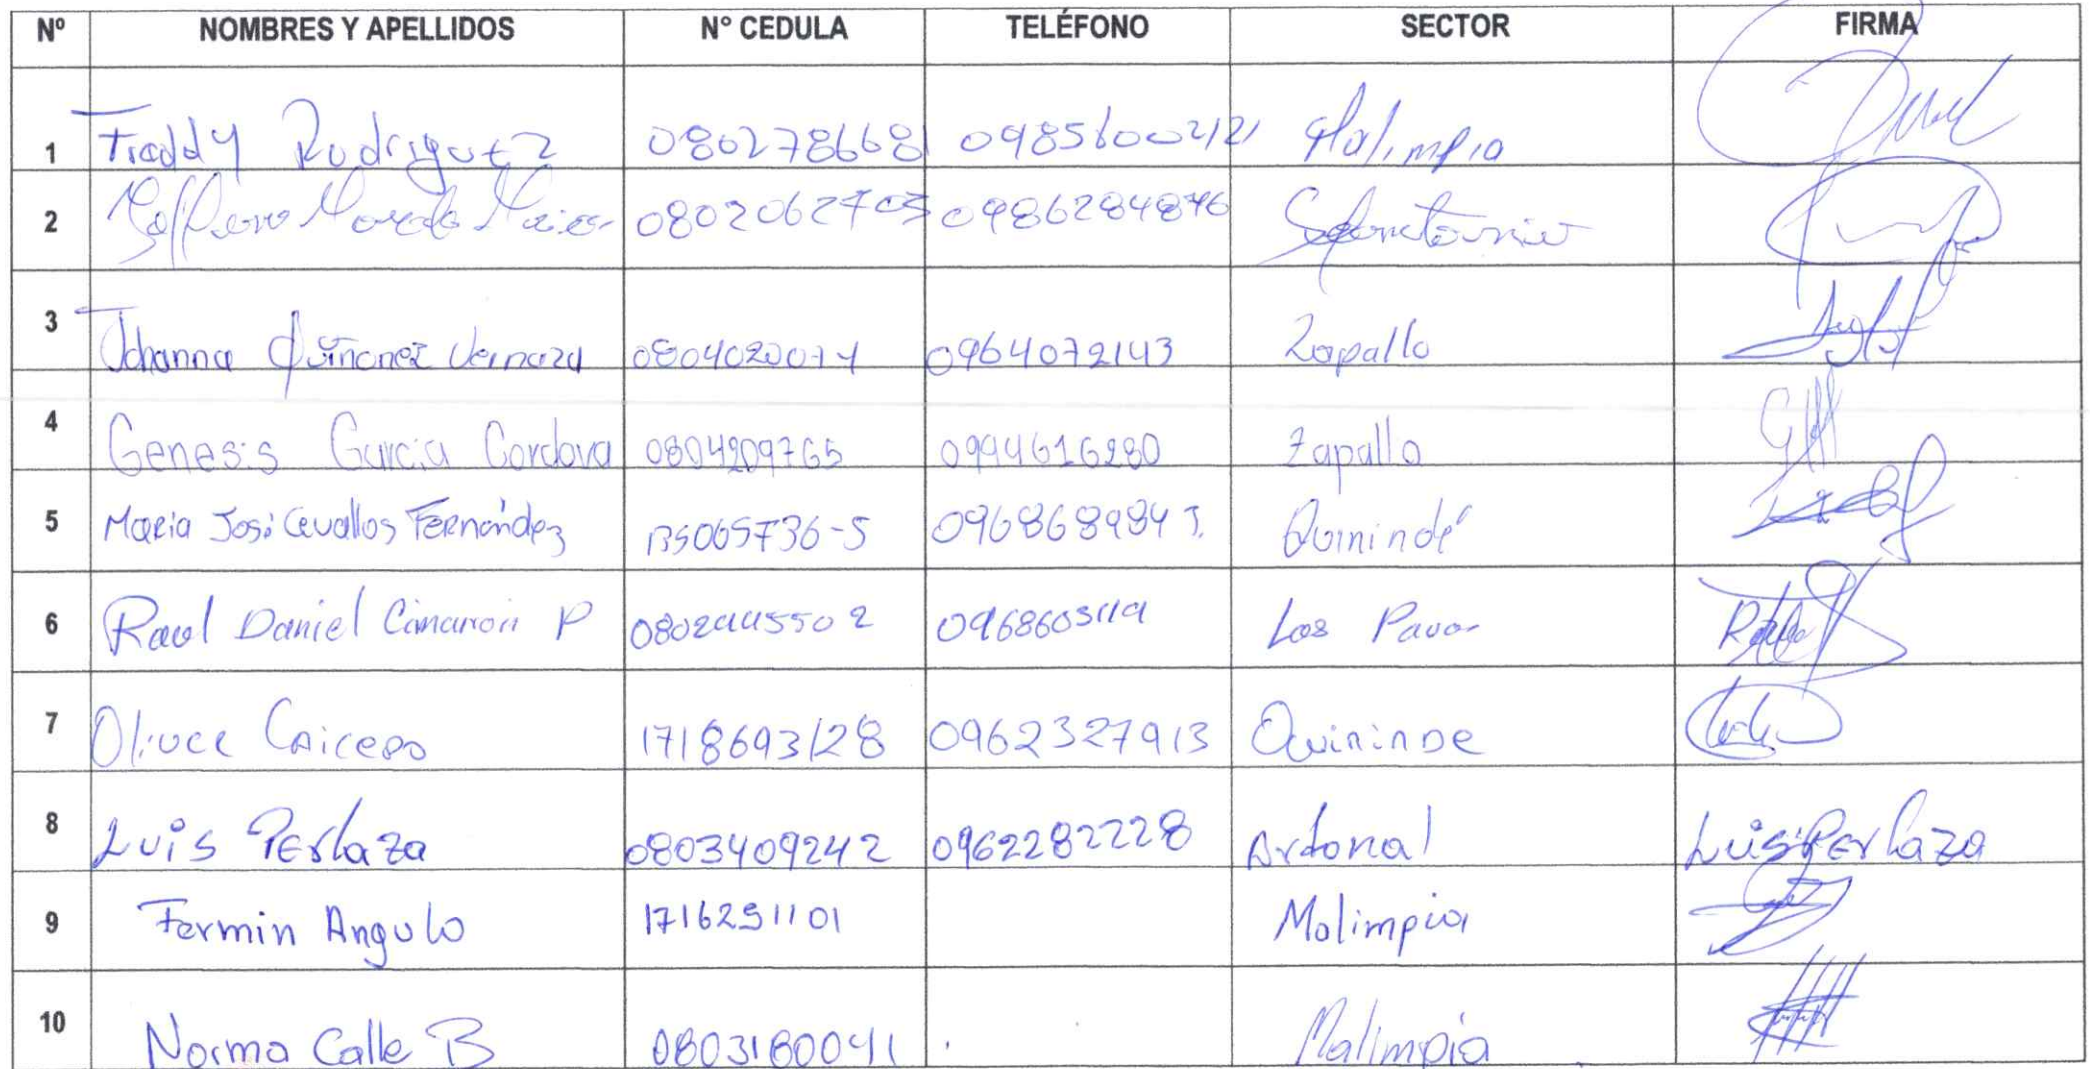 Nº NOMBRES Y APELLIDOS N° CEDULA TELÉFONO SECTOR FIRMA
1 Freddy Rodriguez 0802786681 Malimpia
2 0802062703 0986284876
3 Johanna Quiñonez Vernaza 0804020074 0964072143 Zapallo
4 Genesis Garcia Cordova 0804209765 0994616280 Zapallo
5 Maria José Cevallos Fernández 135065736-5 Quinindé
6 Raul Daniel Cimarron P 0802445502 0968603119 Los Pavos
7 Caicedo 1718693128 0962327913 Quininde
8 Luis Perlaza 0803409242 0962282228 Luis Perlaza
9 Fermin Angulo 1716291101 Malimpia
10 Norma Calle B 0803180041 Malimpia